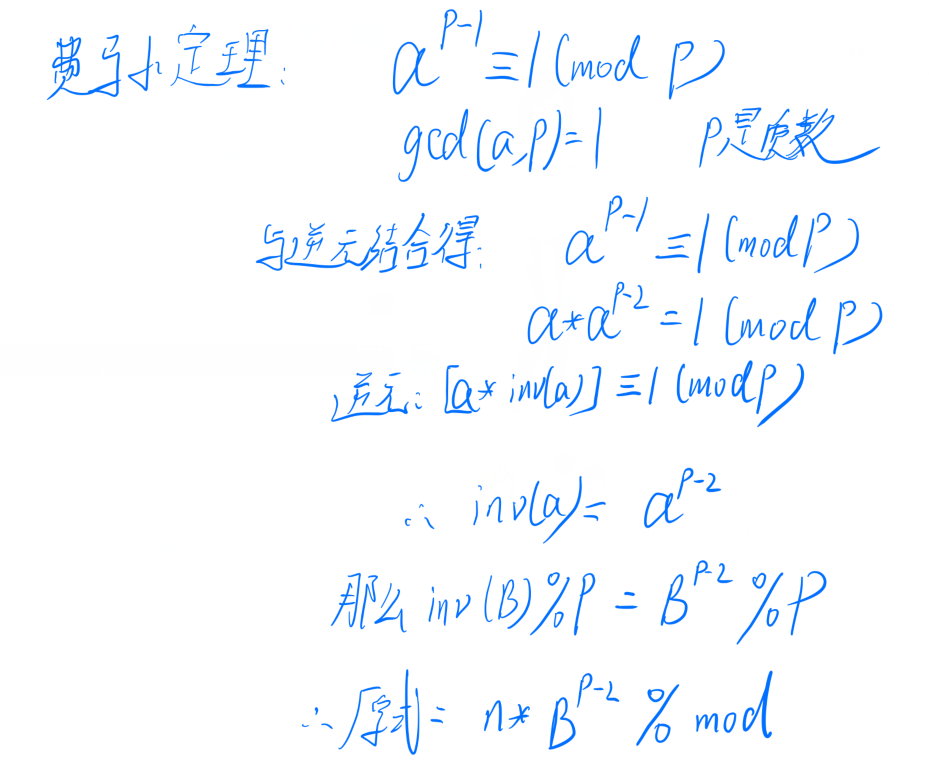 费马小定理: a^{p-1} ≡ 1 (mod p)
gcd(a,p)=1 p是质数
与逆元结合得: a^{p-1} ≡ 1 (mod p)
a*a^{p-2} = 1 (mod p)
逆元: [a*inv(a)] ≡ 1 (mod p)
∴ inv(a) = a^{p-2}
那么 inv(B)%p = B^{p-2} % p
∴ 原式 = n * B^{p-2} % mod